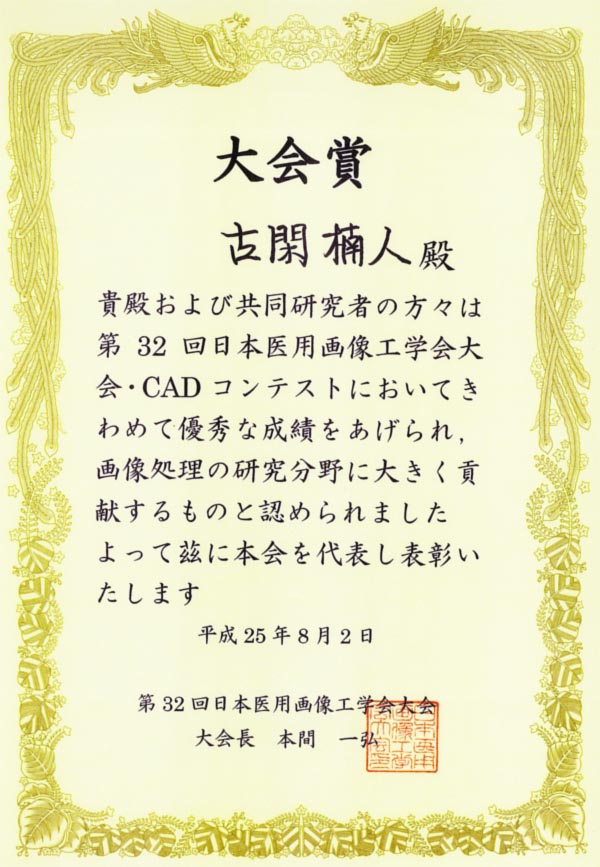 大会賞
古閑 楠人 殿
貴殿および共同研究者の方々は
第 32 回日本医用画像工学会大
会・CAD コンテストにおいてき
わめて優秀な成績をあげられ,
画像処理の研究分野に大きく貢
献するものと認められました
よって茲に本会を代表し表彰い
たします
平成 25 年 8 月 2 日
第 32 回日本医用画像工学会大会
大会長 本間 一弘